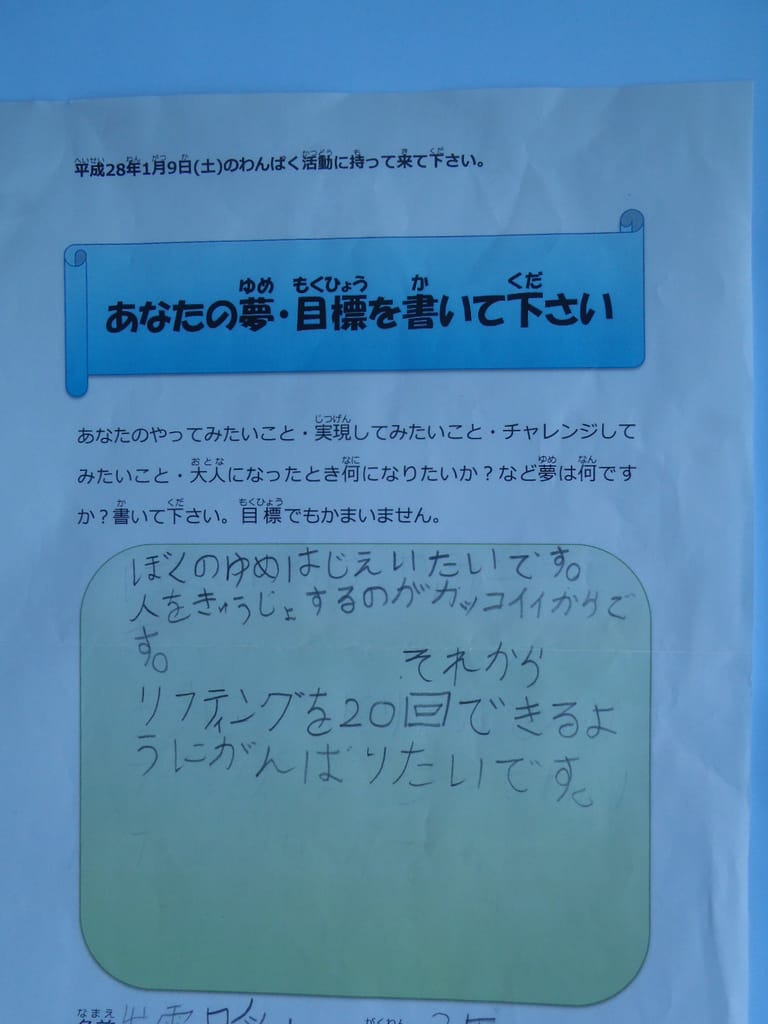 平成28年1月9日(土)のわんぱく活動に持って来て下さい。
あなたの夢・目標を書いて下さい
あなたのやってみたいこと・実現してみたいこと・チャレンジして
みたいこと・大人になったとき何になりたいか？など夢は何です
か？書いて下さい。目標でもかまいません。
ぼくのゆめはじえいたいです。
人をきゅうじょするのがカッコイイからで
す。
それから
リフティングを20回できるよ
うにがんばりたいです。